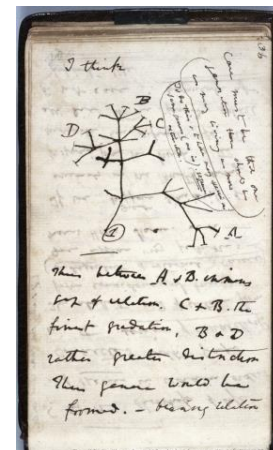 I think
Case must be that one
generation then should be
as many living as now
To do this & to have many species in
same genus (as is) requires
extinction
B
C
D
A
1
Thus between A & B. immens
gap of relation. C & B. the
finest gradation, B & D
rather greater distinction
Thus genera would be
formed. — bearing relation